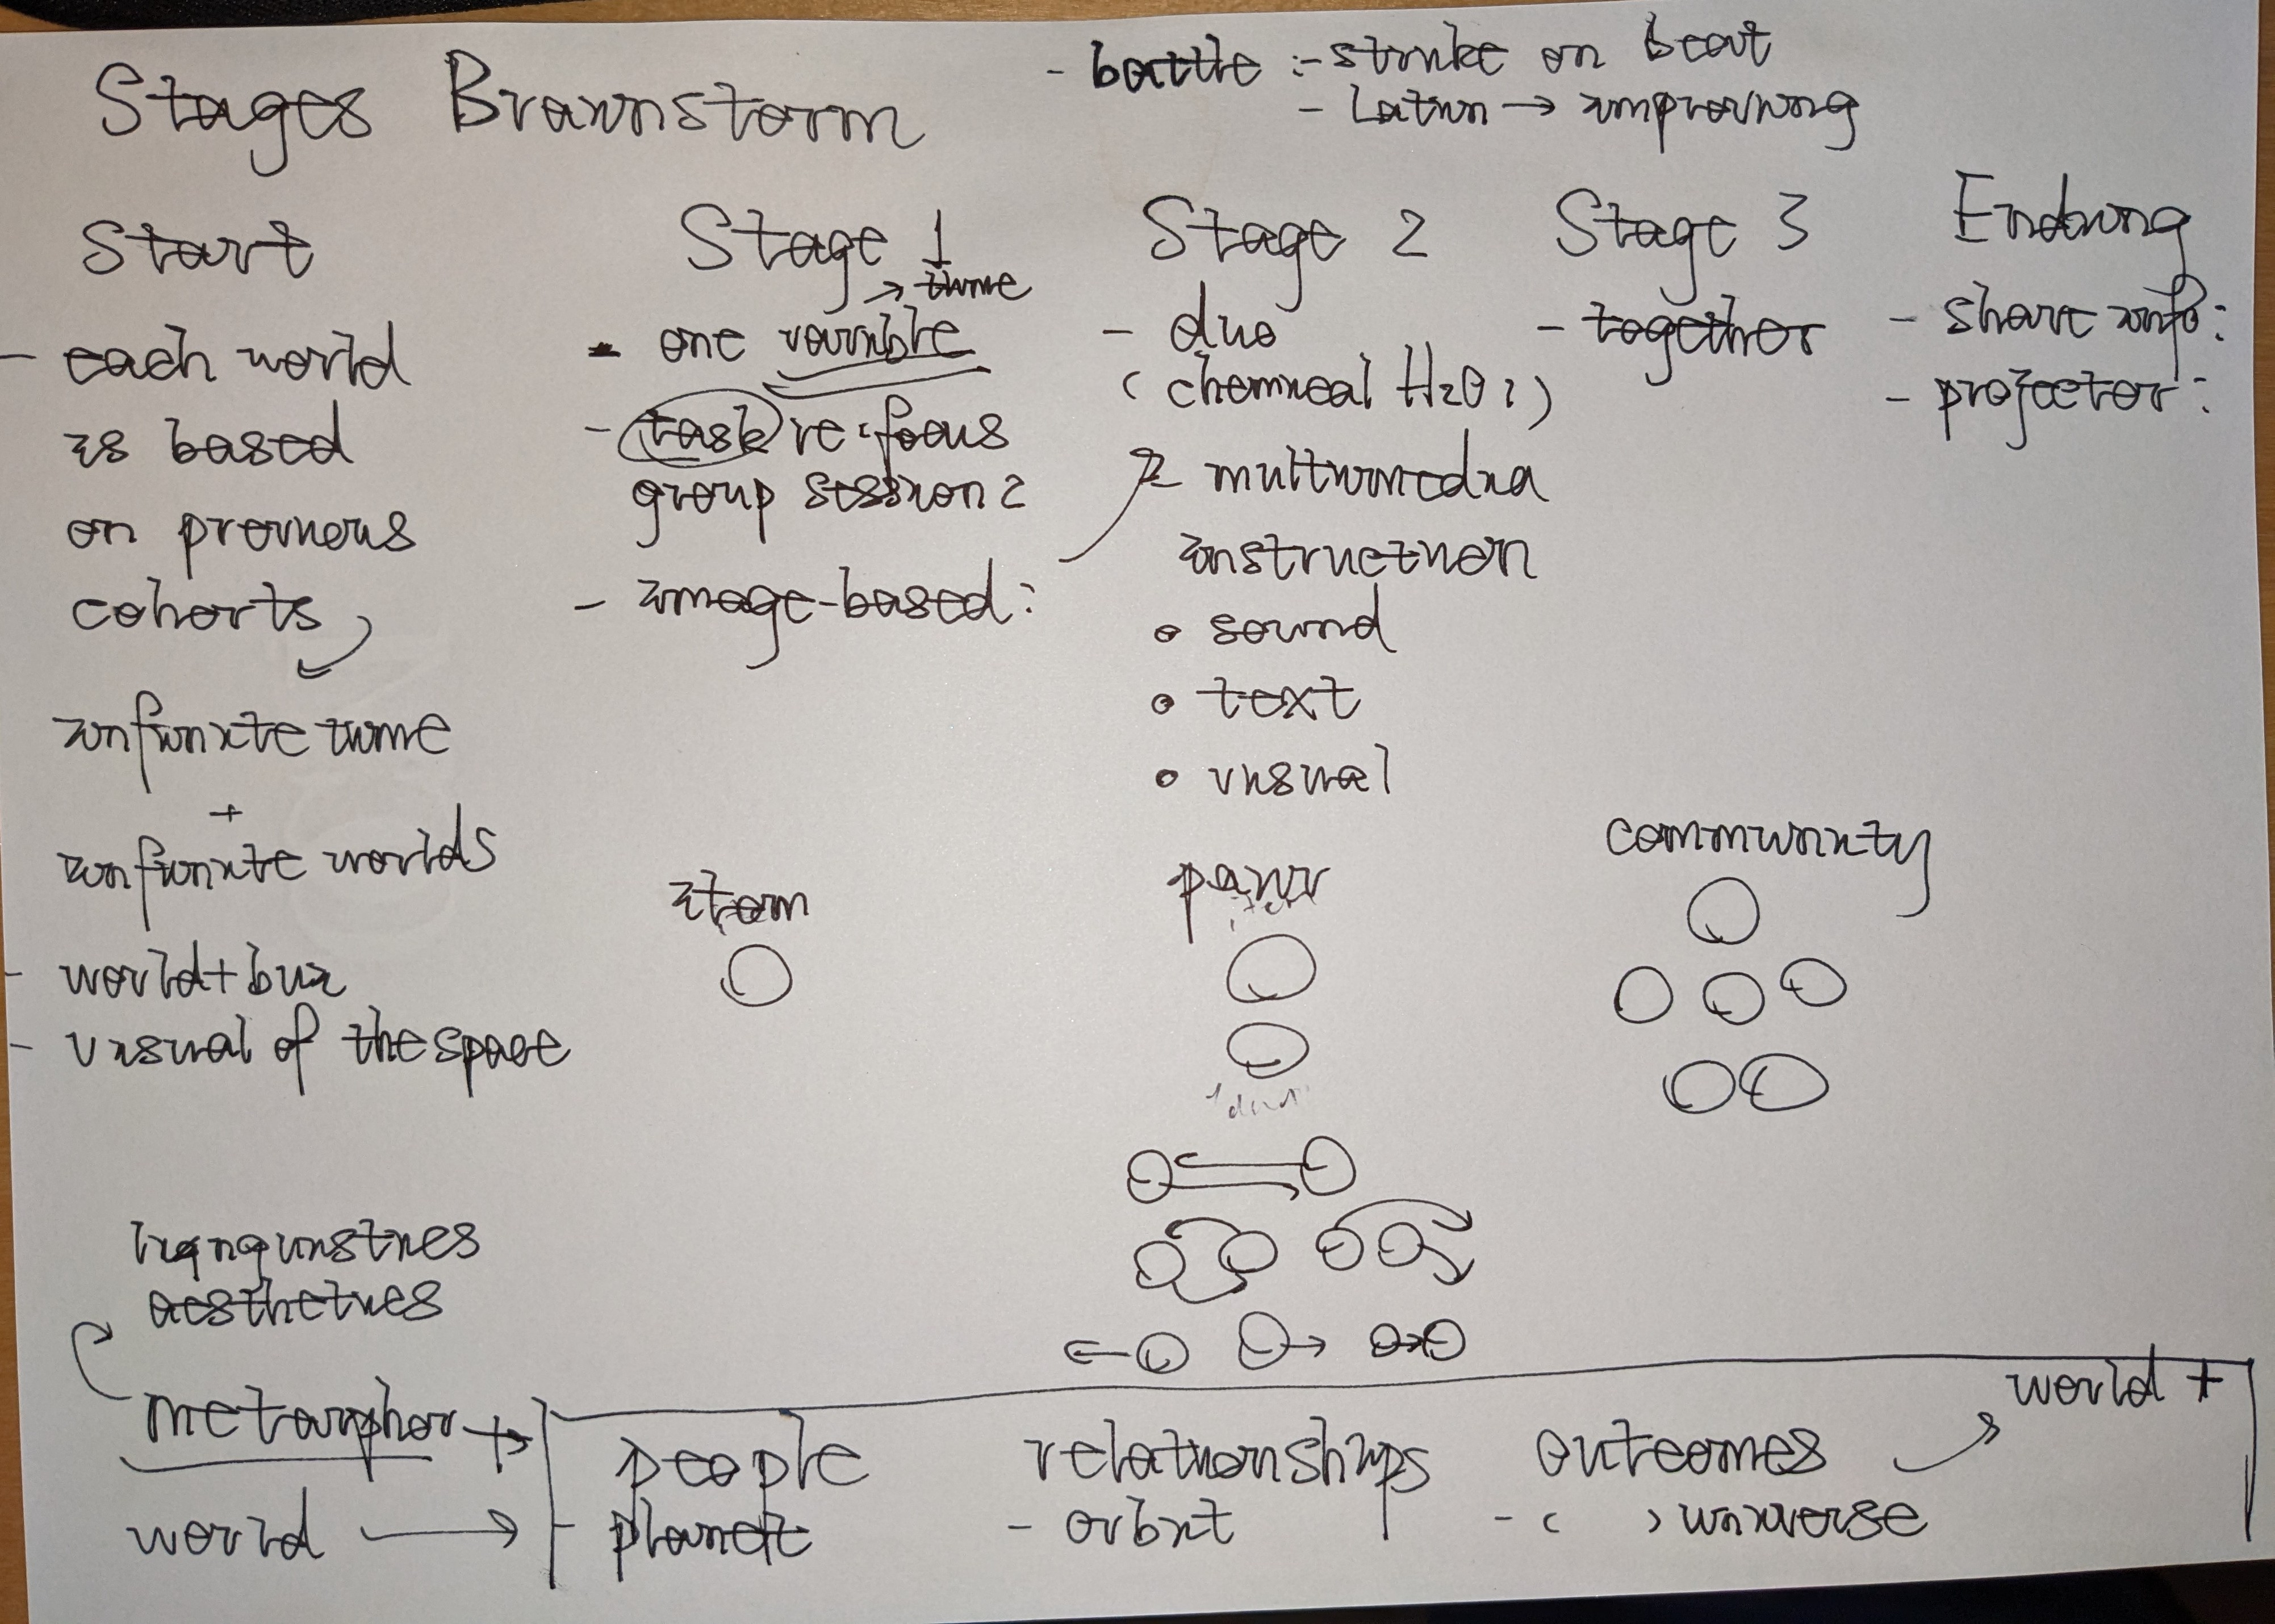 Stages Brainstorm
- battle :- strike on beat
- Latin → improving
Start
- each world
is based
on previous
cohorts
infinite time
+
infinite worlds
- world + bui
- visual of the space
Stage 1
→ time
- one variable
- task re: focus
group session 2
- image-based:
item
Stage 2
- duo
( chemical H2O ? )
multimedia
instruction
• sound
• text
• visual
pair
Stage 3
- together
community
Ending
- share info:
- projector:
linguistics
aesthetics
metaphor →
world →
people
- planet
relationships
- orbit
outcomes
- ( ) universe
world +